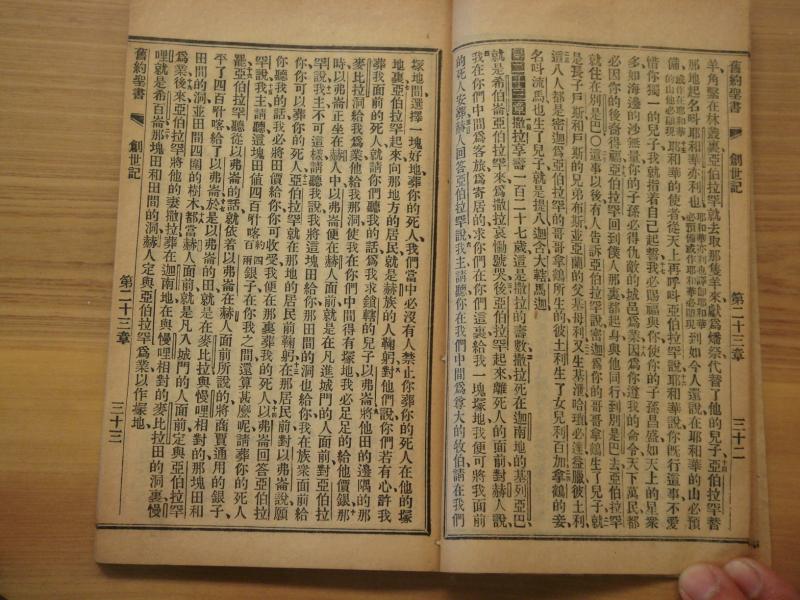 舊約聖書 創世記 第二十三章 三十二
羊角繫在林叢裏亞伯拉罕就去取那隻羊來獻為燔祭代替了他的兒子亞伯拉罕替
那地起名呌耶和華亦利也到如今人還說在耶和華的山必預
備或作在耶和華的山他必顯現耶和華的使者從天上再呼呌亞伯拉罕說耶和華說你旣行這事不愛
惜你獨一的兒子我就指着自己起誓我必賜福與你使你的子孫昌盛如天上的星衆
多如海邊的沙無量你的子孫必得仇敵的城邑為業因為你遵我的命令天下萬民都
必因你的後裔得福亞伯拉罕回到僕人那裏都起身與他同行到別是巴去亞伯拉罕
就住在別是巴〇這事以後有人告訴亞伯拉罕說密迦為你的哥哥拿鶴生了兒子就
是長子戶斯和戶斯的兄弟布斯並亞蘭的父基母利又生基泄哈瑣必達益臘彼土利
這八人都是密迦為亞伯拉罕的哥哥拿鶴所生的彼土利生了女兒利百加拿鶴的妾
名呌流馬也生了兒子就是提八迦含大轄馬迦
第二十三章撒拉享壽一百二十七歲這是撒拉的壽數撒拉死在迦南地的基列亞巴
就是希伯崙亞伯拉罕來為撒拉哀慟號哭後亞伯拉罕起來離死人的面前對赫人說
我在你們中間為客旅為寄居的求你們在你們這裏給我一塊塚地我便可將我面前
的死人安葬赫人回答亞伯拉罕說我主請聽你在我們中間為尊大的牧伯請在我們
塚地間選擇一塊好地葬你的死人我們當中必沒有人禁止你葬你的死人在他的塚
地裏亞伯拉罕起來向那地方的居民就是赫族的人鞠躬對他們說你們若有心許我
葬我面前的死人就請你們聽我的話為我求鎖轄的兒子以弗崙將他田的邊隅的那
麥比拉洞給我為業他給我那洞使我在你們中間得有塚地我必足足的給他價銀那
時以弗崙正坐在赫人中以弗崙便在赫人面前就是在凡進城門的人面前對亞伯拉
罕說我主不可這樣請聽我說我將這塊田給你那田間的洞也給你我在族衆面前給
你可以葬你的死人亞伯拉罕就在那地的居民前鞠躬在那居民前對以弗崙說願
你聽我的話我必將田價給你你可收受我便在那裏葬我的死人以弗崙回答亞伯拉
罕說我主請聽這塊田値四百歇客約四百兩銀子在你我之間還算甚麼呢請葬你的死人
罷亞伯拉罕聽從以弗崙的話就依着以弗崙在赫人面前所說的將商賈通用的銀子
平了四百給了以弗崙於是以弗崙的田就是在麥比拉與慢哩相對的那塊田和
田間的洞並田間四圍的樹木都當赫人面前就是凡入城門的人面前定與亞伯拉罕
為業後來亞伯拉罕將他的妻撒拉葬在迦南地在與慢哩相對的麥比拉田的洞裏慢
哩就是希百崙那塊田和田間的洞赫人定與亞伯拉罕為業以作塚地
舊約聖書 創世記 第二十三章 三十三